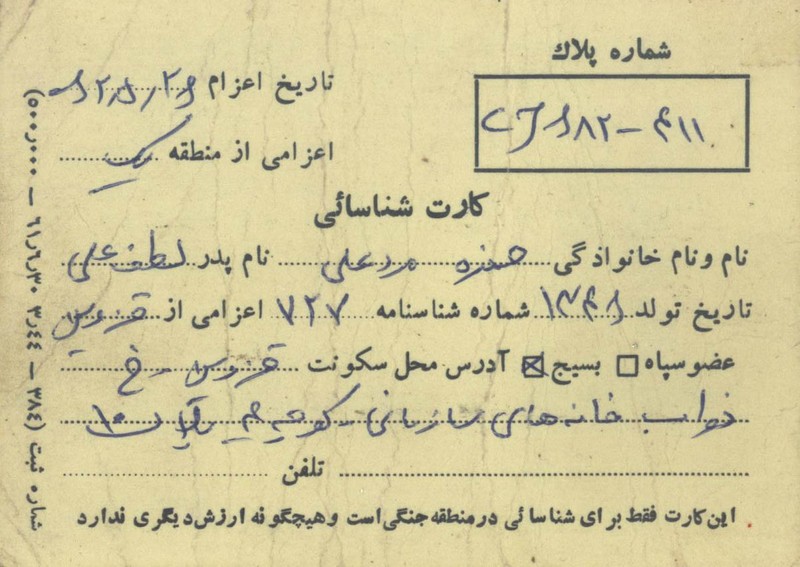 شماره پلاك
تاریخ اعزام
اعزامی از منطقه یک
کارت شناسائی
نام و نام خانوادگی حمزه مردعلی نام پدر لطفعلی
تاریخ تولد شماره شناسنامه ۷۲۷ اعزامی از قزوین
عضو سپاه ☐ بسیج ☒ آدرس محل سکونت قزوین - خ
نواب خانه‌های سازمانی - کوچه پلاک ۱۵
تلفن
این کارت فقط برای شناسائی در منطقه جنگی است و هیچگونه ارزش دیگری ندارد
شماره ثبت (۳۸٤ — ۳٫٤٤ ۳۰ر٦ر٦۱ — ۵۰۰٫۰۰۰)